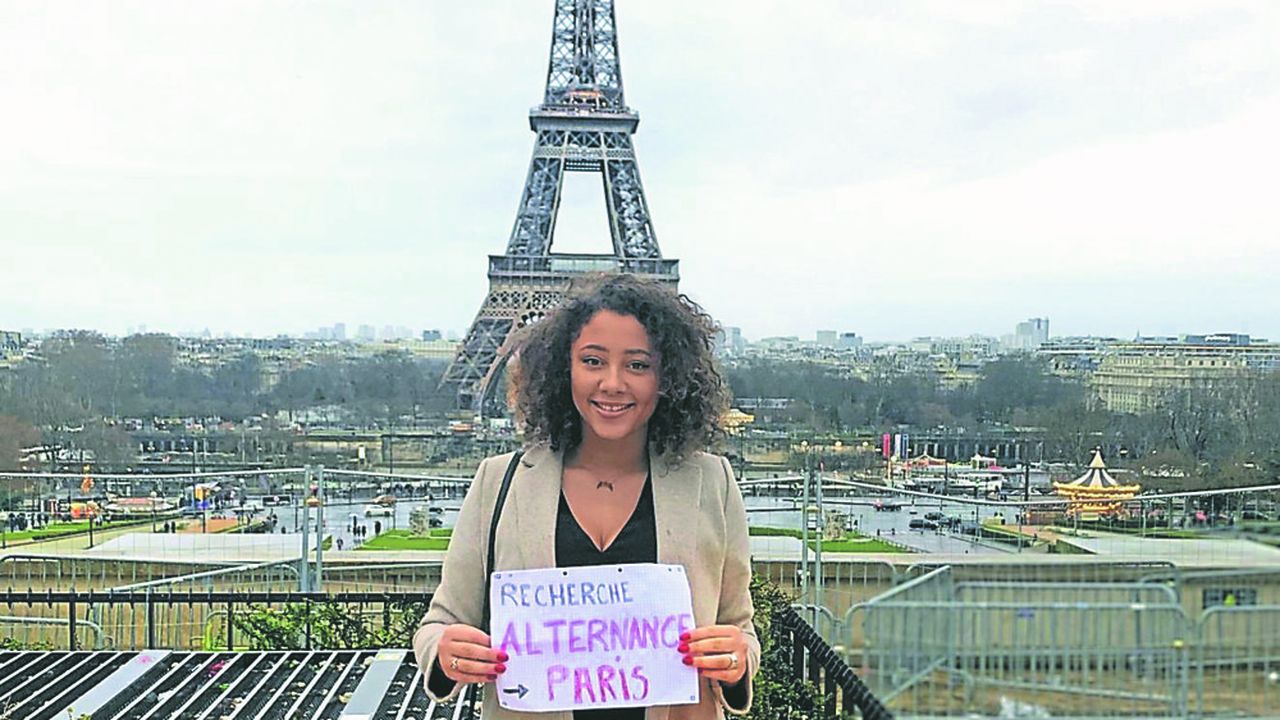 RECHERCHE
ALTERNANCE
PARIS
→